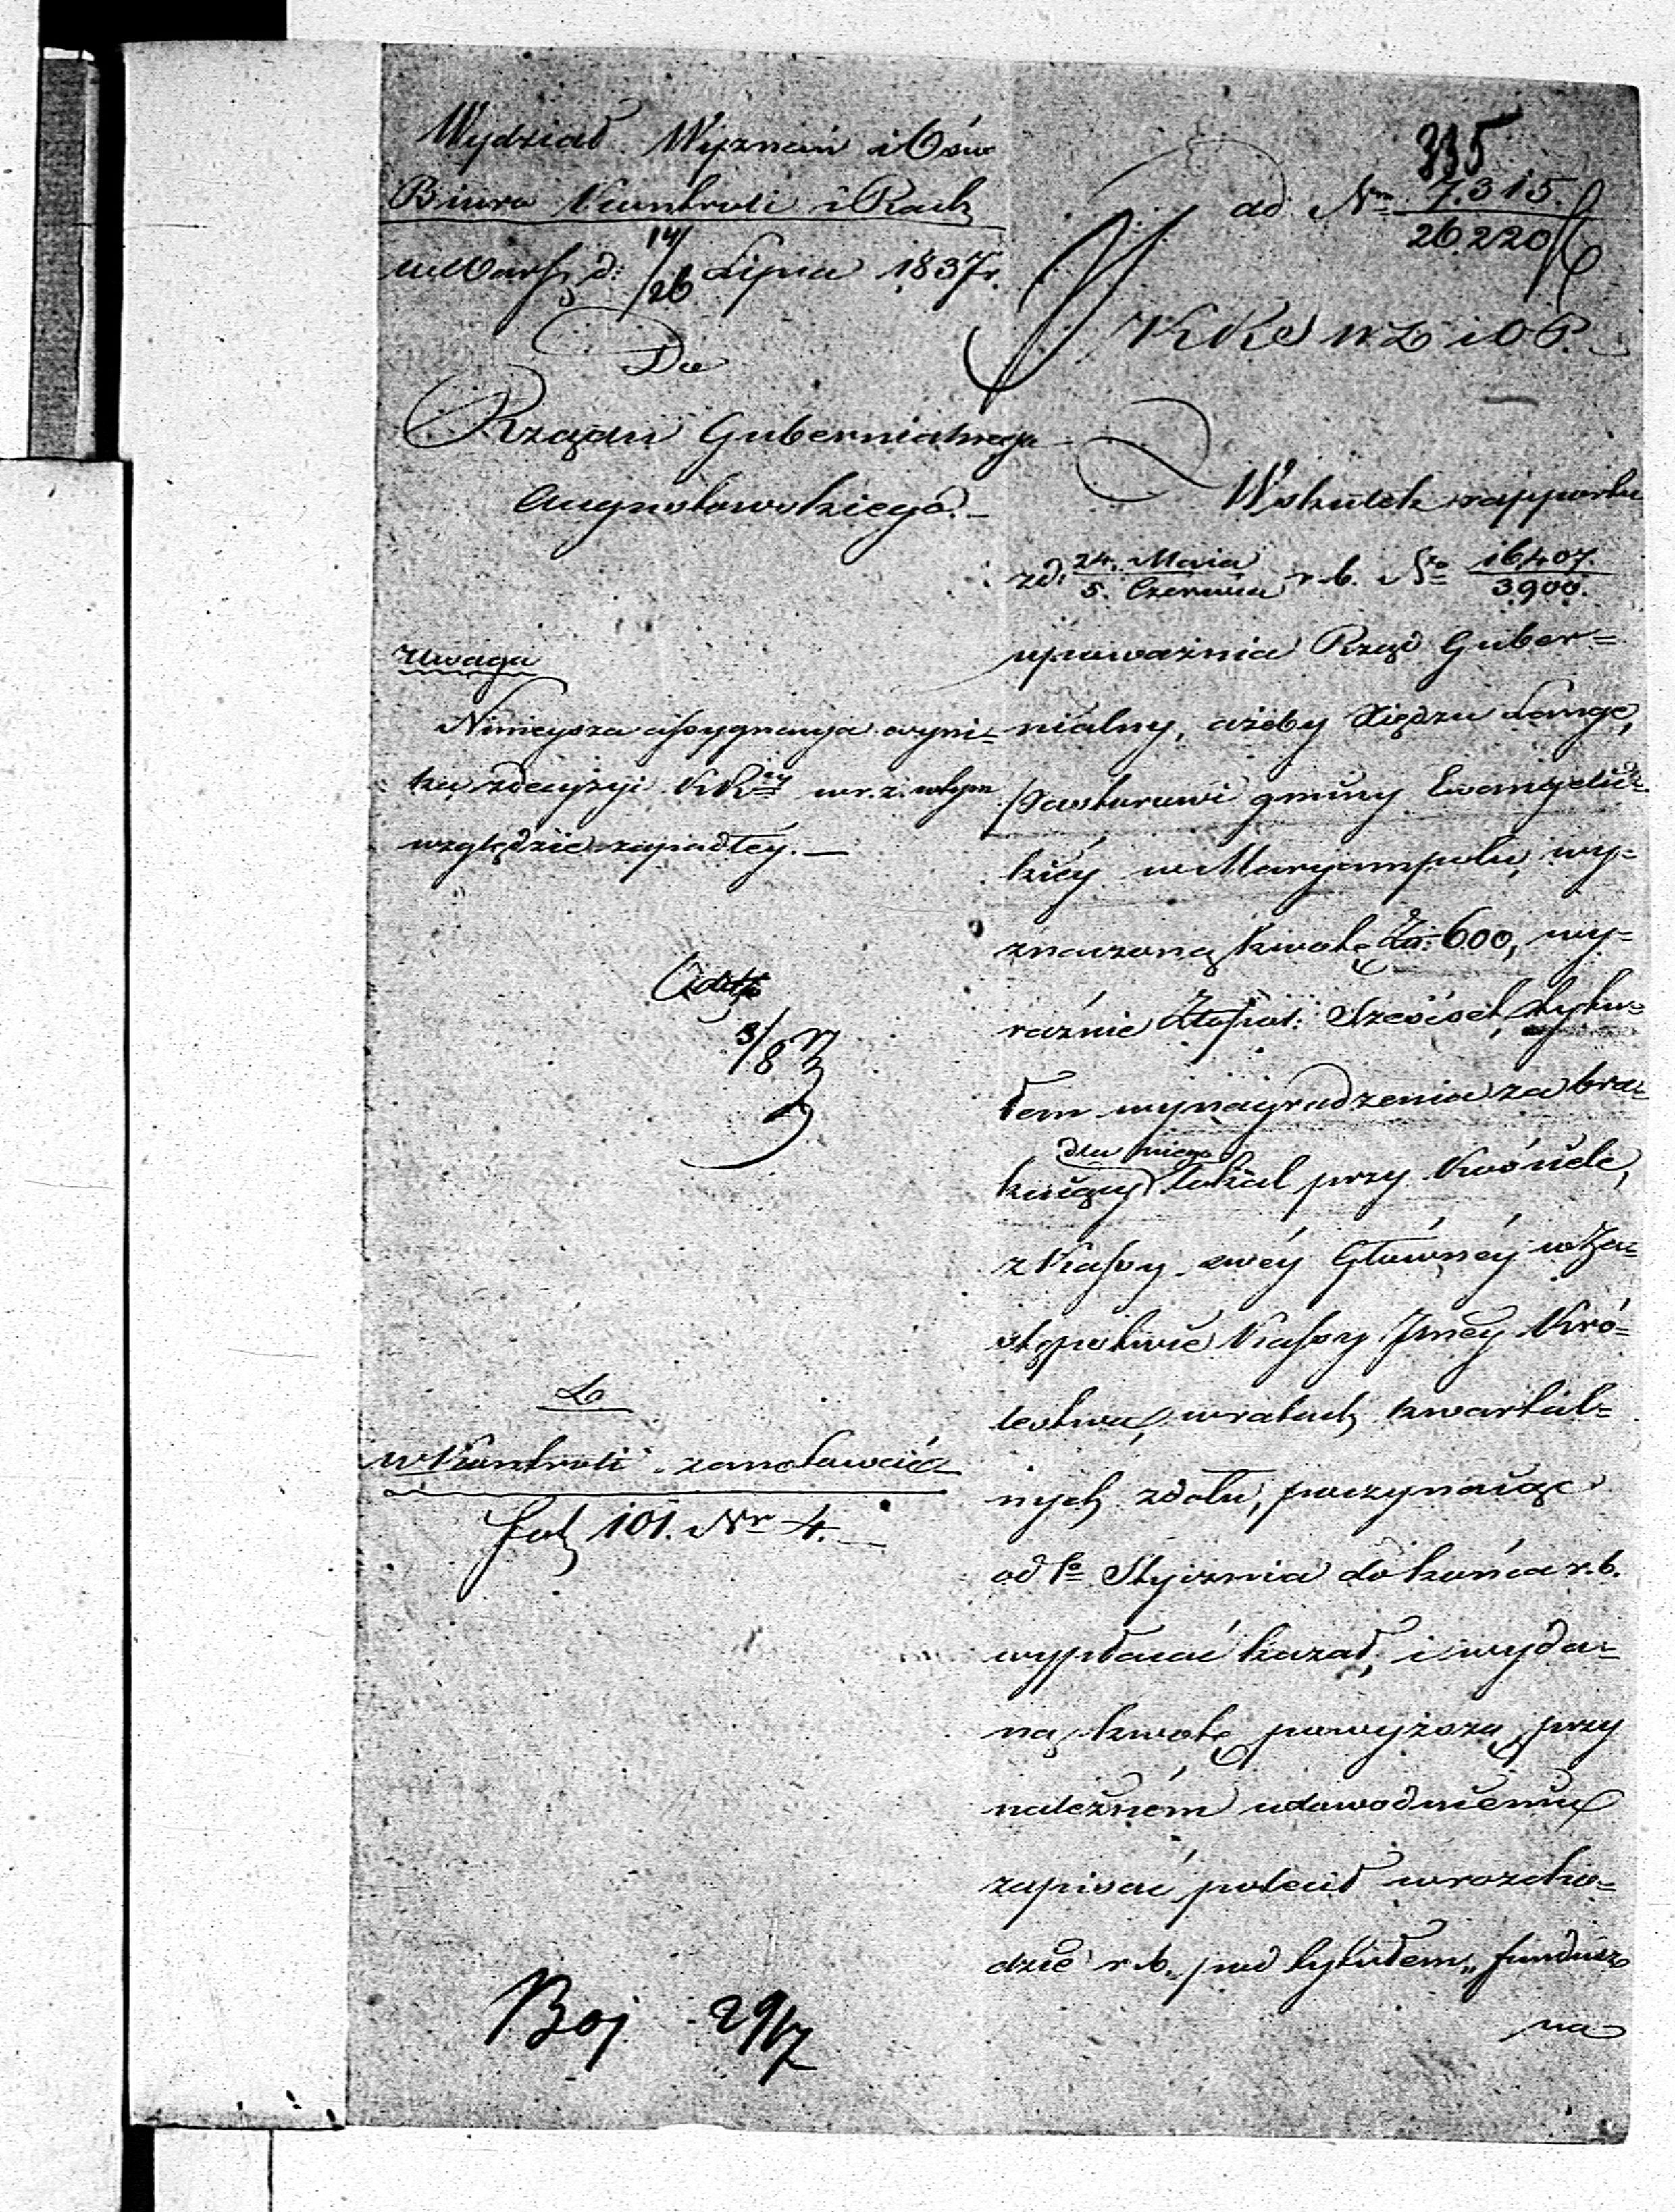 335
Wydział Wyznań i Ośw
Biuro Kontroli i Rach
w Warsz d: 14/26 Lipca 1837 r.
ad Nrm 7.315./26220
Do
Rządu Gubernialnego
Augustowskiego.
KRSWD i OP.
Wskutek rapportu
z d: 24. Maia/5. Czerwca r. b. No 16407./3900.
upoważnia Rząd Guber=
nialny, ażeby Xiędzu Lange,
Pastorowi gminy Ewangelic=
kiéy w Maryampolu, wy=
znaczoną kwotę Zł: 600, wy=
raźnie Złotpol: Sześćset, tytu=
łem wynagrodzenia za bra=
kuiący dla niego lokal przy Kościele,
z Kassy swéy Głównéy w Za=
stępstwie Kassy Jnéy Kró=
lestwa, w ratach kwartal=
nych z dołu, poczynaiąc
od 1o Stycznia do końca r. b.
wypłacać kazał, i wyda=
ną kwotę powyższą, przy
należném udowodnieniu
zapisać polecił w rozcho=
dzie r. b. pod tytułem „fundusz
na
Uwaga
Ninieysza assygnacya wyni=
ka z decyzyi KRéy w r. z. w tym
względzie zapadłéy.
3/8
w Kontroli zanotować
fol 101. Nr 4.
Boj 29/7